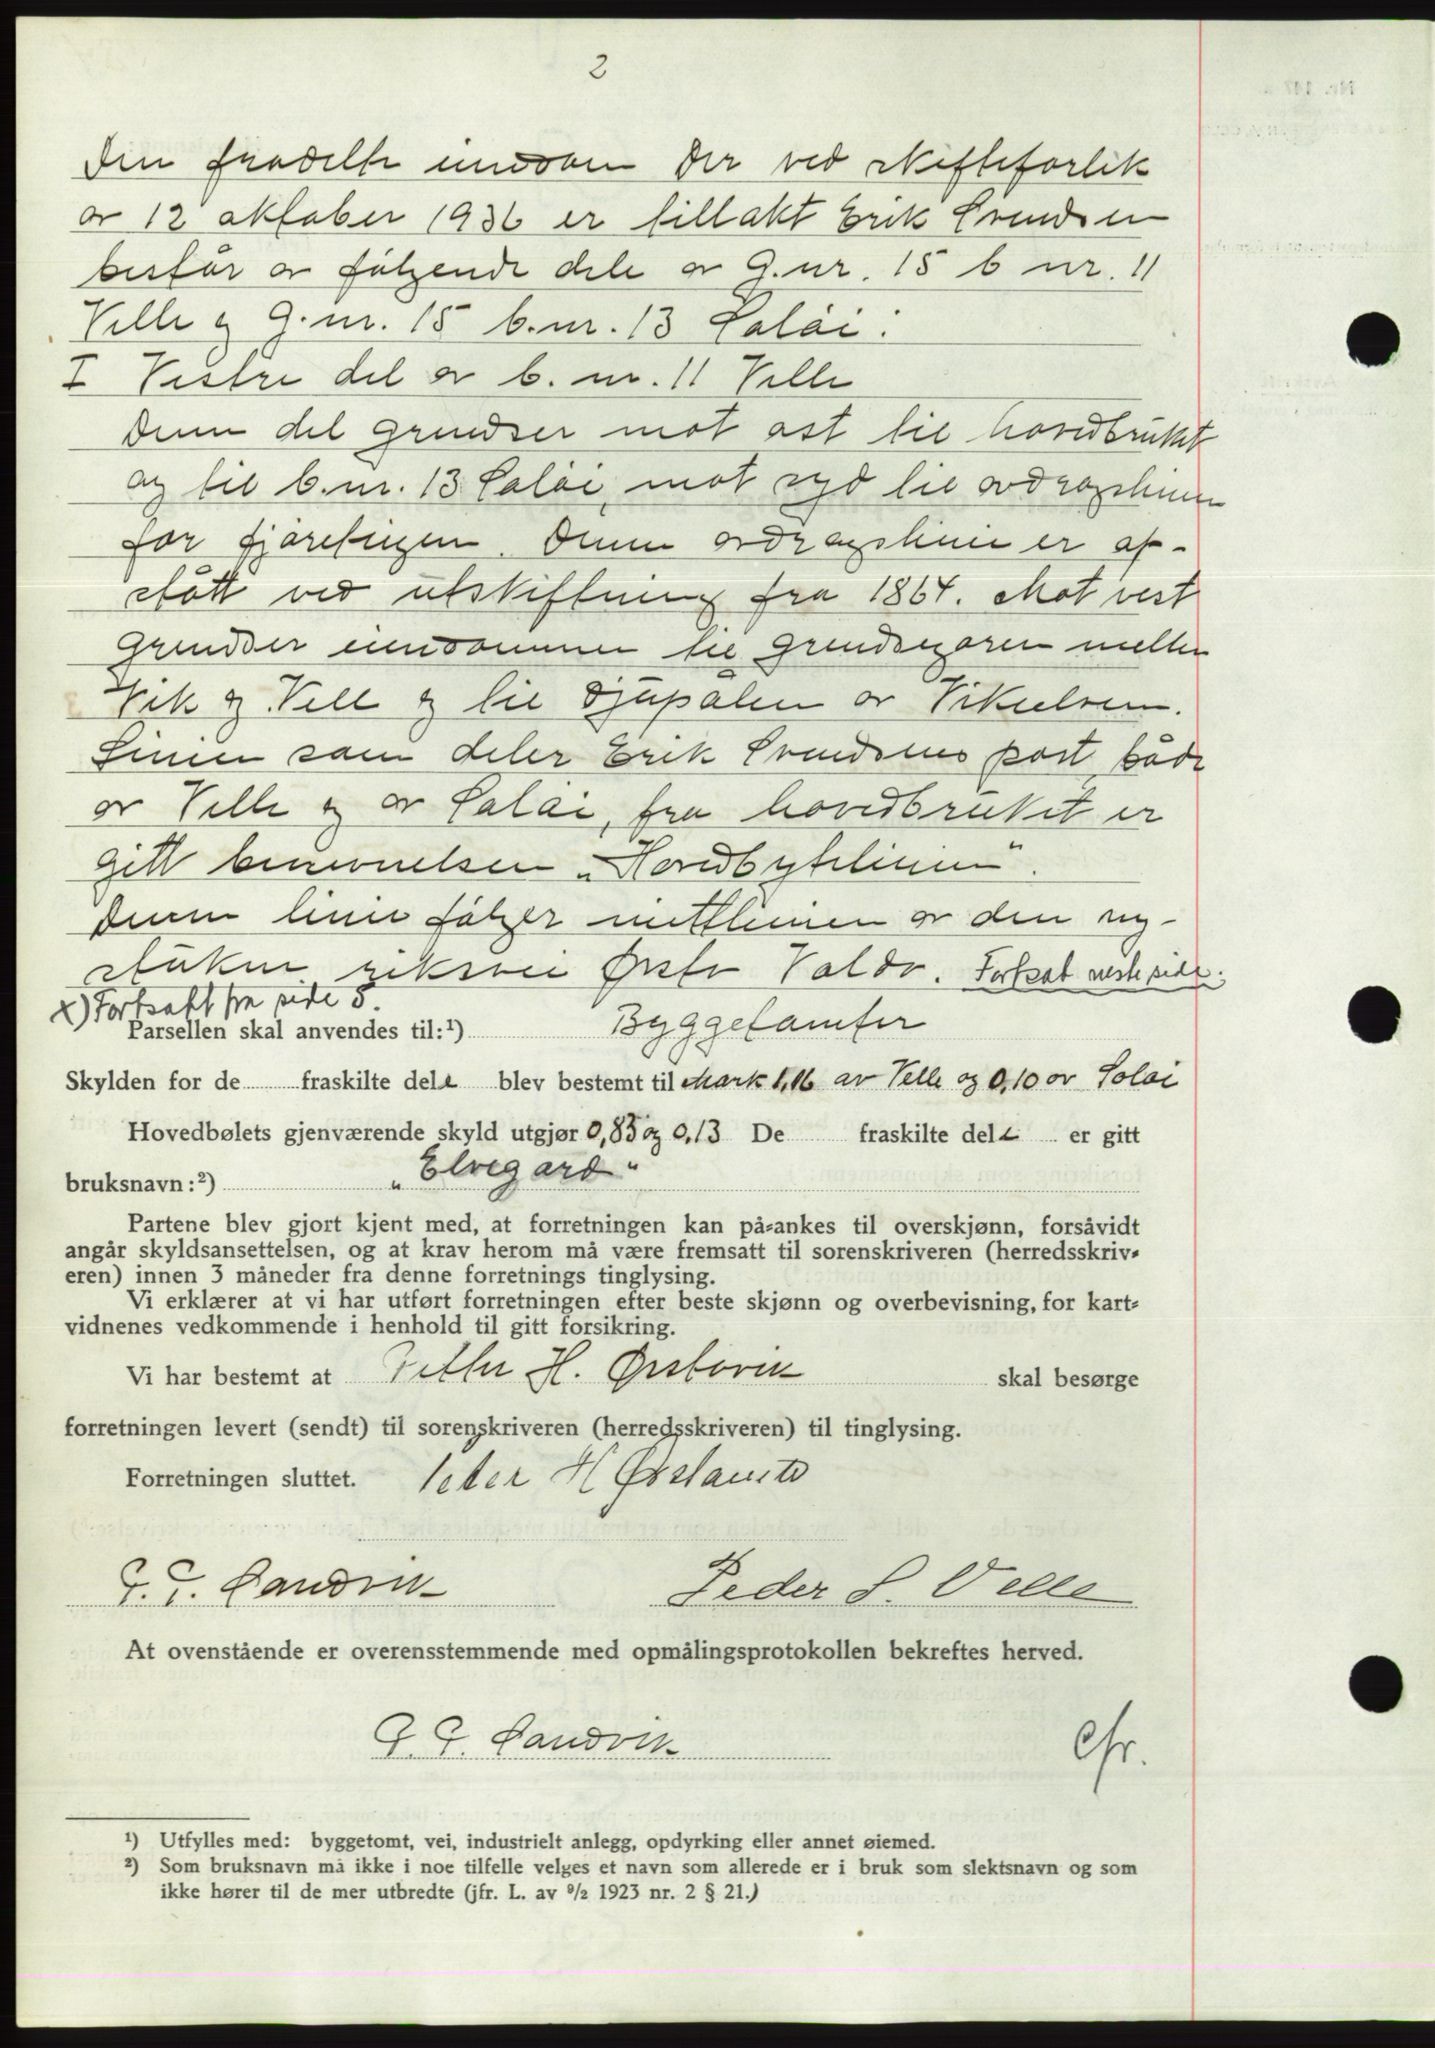 2
Den fradelte eiendom der ved skifteforlik
av 12 oktober 1936 er tillakt Erik Svendsen
består av følgende dele av G.nr. 15 b nr. 11
Velle og G.nr. 15 b.nr. 13 Saløi:
I Vestre del av b.nr. 11 Velle
Denne del grendser mot øst til hovedbruket
og til b.nr. 13 Saløi, mot syd til avdragslinien
for fjøreteigen. Denne avdragslinie er op-
stått ved utskiftning fra 1864. Mot vest
grendser eiendommen til grendsegaren mellem
Vik og Velle og til Djupålen av Vikeelven.
Linien som deler Erik Svendsens part, både
av Velle og av Saløi, fra hovedbruket er
gitt benevnelsen „Hovedbytelinien".
Denne linie følger mittlinien av den ny-
stukne riksvei Ørsta Volda. Fortsat neste side.
x) Fortsatt fra side 5.
Parsellen skal anvendes til:¹) Byggetomter
Skylden for de fraskilte dele blev bestemt til Mark 1,16 av Velle og 0,10 av Saløi
Hovedbølets gjenværende skyld utgjør 0,83 og 0,13 De fraskilte dele er gitt
bruksnavn:²) „Elvegard"
Partene blev gjort kjent med, at forretningen kan på-ankes til overskjønn, forsåvidt
angår skyldsansettelsen, og at krav herom må være fremsatt til sorenskriveren (herredsskriv-
eren) innen 3 måneder fra denne forretnings tinglysing.
Vi erklærer at vi har utført forretningen efter beste skjønn og overbevisning, for kart-
vidnenes vedkommende i henhold til gitt forsikring.
Vi har bestemt at Petter H. Ørstavik skal besørge
forretningen levert (sendt) til sorenskriveren (herredsskriveren) til tinglysing.
Forretningen sluttet. Peter H Ørstavik
G. G. Sandvik Peder S. Velle
At ovenstående er overensstemmende med opmålingsprotokollen bekreftes herved.
G. G. Sandvik
Cfr.
¹) Utfylles med: byggetomt, vei, industrielt anlegg, opdyrking eller annet øiemed.
²) Som bruksnavn må ikke i noe tilfelle velges et navn som allerede er i bruk som slektsnavn og som
ikke hører til de mer utbredte (jfr. L. av 9/2 1923 nr. 2 § 21.)